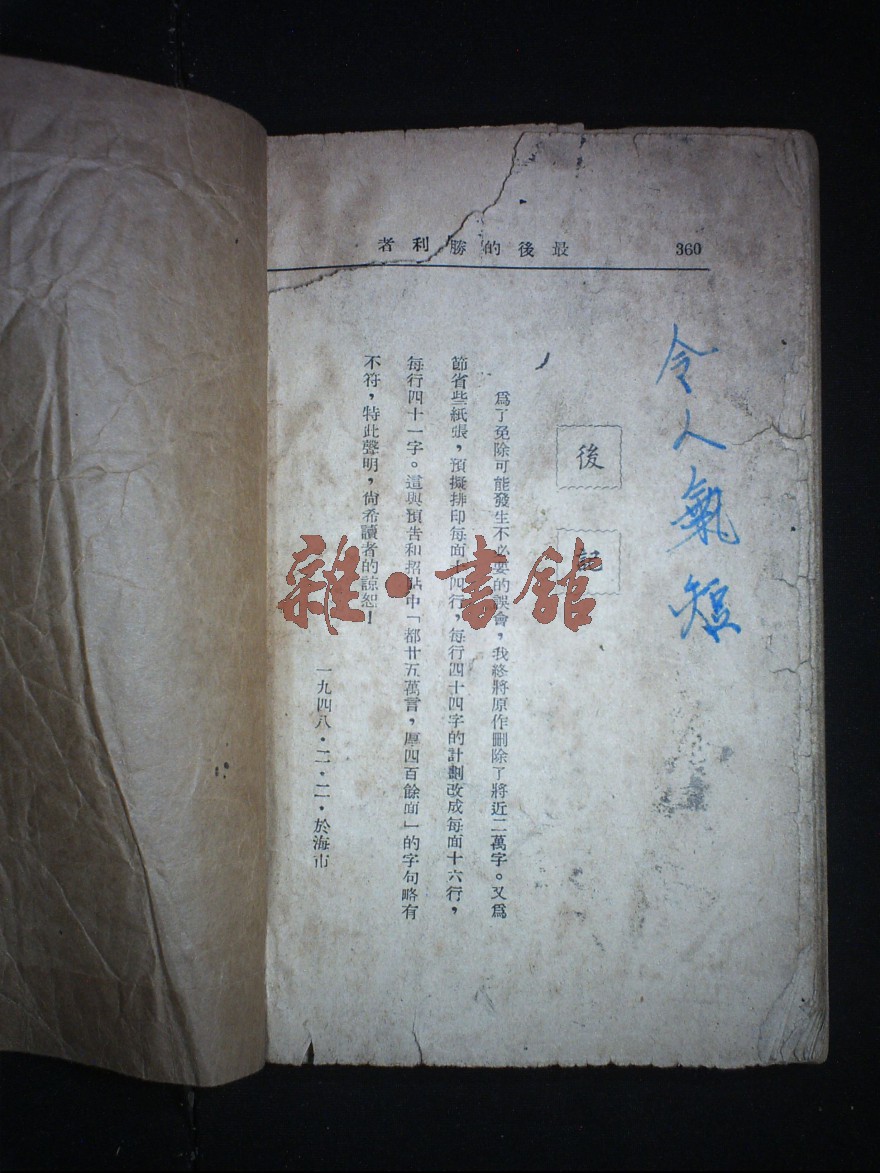 360
最後的勝利者
令人氣短
後記
爲了免除可能發生不必要的誤會，我終將原作刪除了將近二萬字。又爲
節省些紙張，預擬排印每面十四行，每行四十四字的計劃改成每面十六行，
每行四十一字。這與預告和招貼中「都廿五萬言，厚四百餘面」的字句略有
不符，特此聲明，尙希讀者的諒恕！
一九四八·二·二·於海市
雜·書館